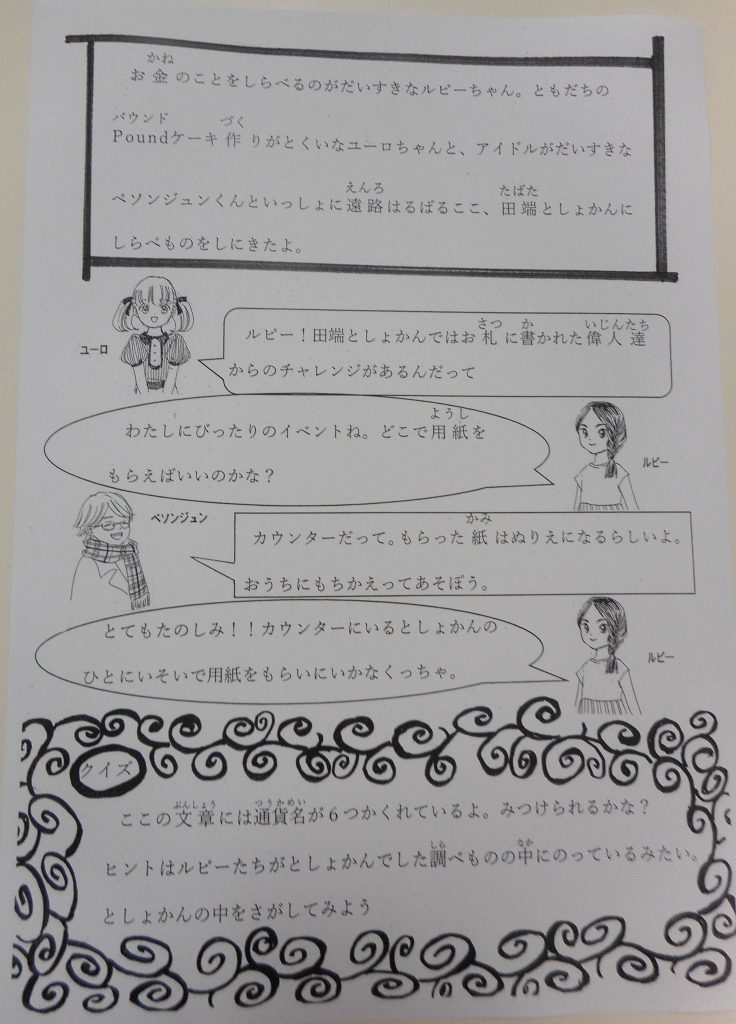 かね
お金のことをしらべるのがだいすきなルピーちゃん。ともだちの
パウンド づく
Poundケーキ作りがとくいなユーロちゃんと、アイドルがだいすきな
えんろ たばた
ペソンジュンくんといっしょに遠路はるばるここ、田端としょかんに
しらべものをしにきたよ。
さつ か いじんたち
ルピー！田端としょかんではお札に書かれた偉人達
ユーロ
からのチャレンジがあるんだって
ようし
わたしにぴったりのイベントね。どこで用紙を
ルピー
もらえばいいのかな？
ペソンジュン
かみ
カウンターだって。もらった紙はぬりえになるらしいよ。
おうちにもちかえってあそぼう。
とてもたのしみ！！カウンターにいるとしょかんの
ルピー
ひとにいそいで用紙をもらいにいかなくっちゃ。
クイズ
ぶんしょう つうかめい
ここの文章には通貨名が６つかくれているよ。みつけられるかな？
しら なか
ヒントはルピーたちがとしょかんでした調べものの中にのっているみたい。
としょかんの中をさがしてみよう